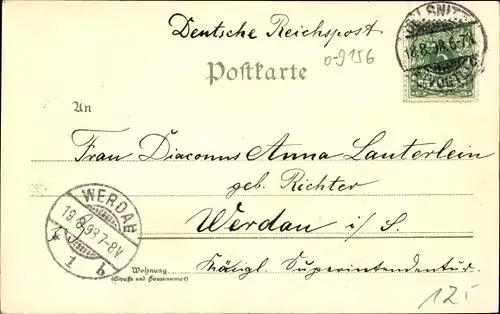 Deutsche Reichspost
OELSNITZ
18.8.98.6-7N
(VOGTL.)
0-9156
Postkarte
An
Frau Diaconus Anna Lauterlein
geb. Richter
Werdau i/S.
WERDAU
19.8.98.7-8V
1 b
Wohnung
(Straße und Hausnummer)
Königl. Superintendentur.
12.-